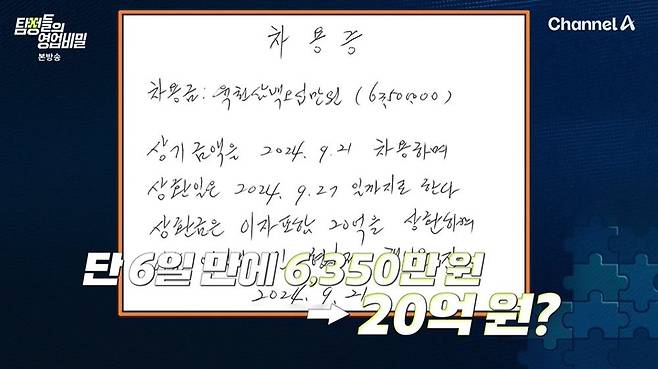 탐정들의
영업비밀
본방송
Channel A
차용증
차용금: 육천삼백오십만원 (63,500,000)
상기 금액을 2024. 9. 21 차용하며
상환일은 2024. 9. 27 일까지로 한다
상환금은 이자포함 20억을 상환하며
단 6일 만에 6,350만 원
2024. 9. 21
→ 20억 원?